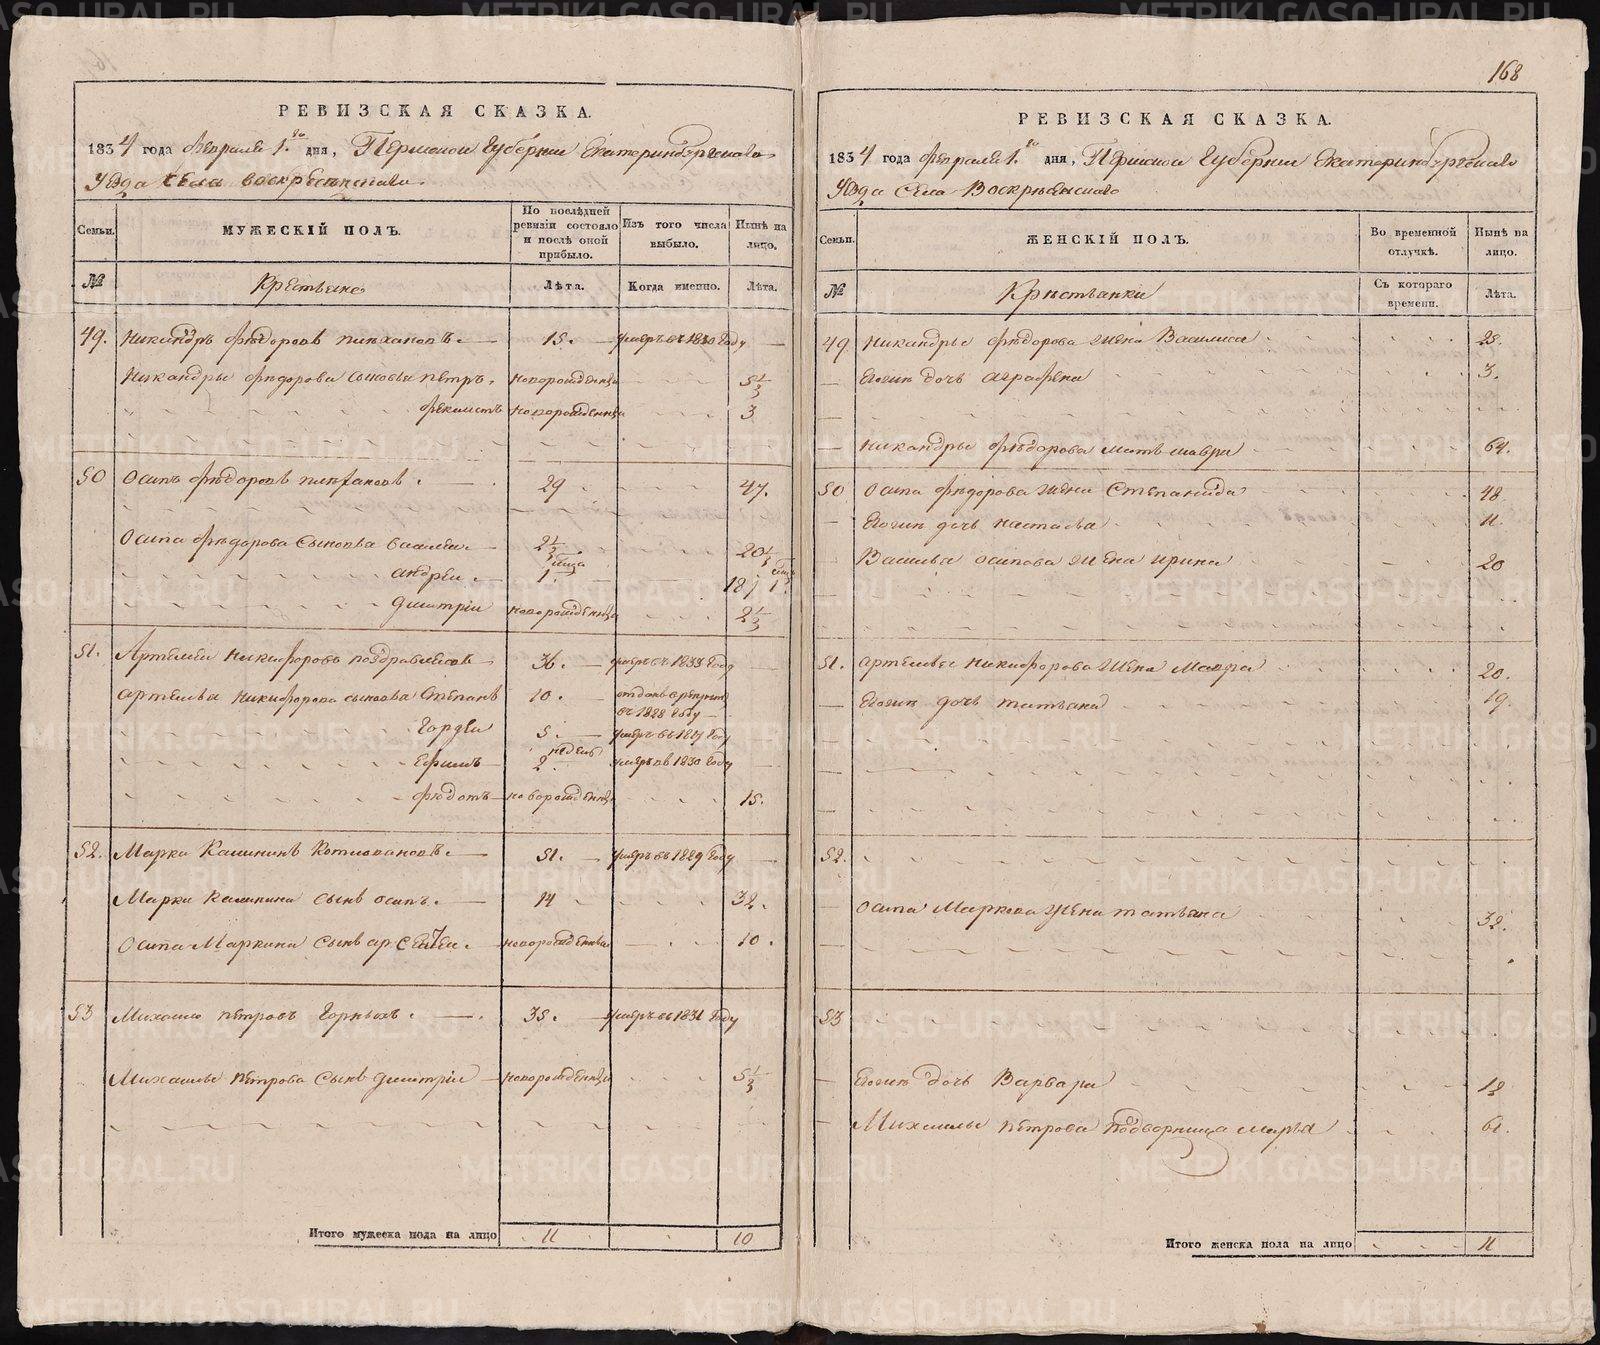 168
РЕВИЗСКАЯ СКАЗКА.
1834 года февраля 1.го дня, Пермской Губернии Екатеринбургскаго
Уѣзда села воскресенскаго.
Семьи. МУЖЕСКІЙ ПОЛЪ. По послѣдней ревизіи состояло и послѣ оной прибыло. Изъ того числа выбыло. Нынѣ на лицо.
№ Крестьяне Лѣта. Когда именно. Лѣта.
49. Никандръ фѣдоровъ 15. умеръ въ 1830 году
Никандры фѣдорова сыновья пѣтръ. новорожденны 5 1/3
феклистъ новорожденны 3
50 Осипъ фѣдоровъ 29 47.
Осипа фѣдорова сыновья василеи. 2 1/3 20 1/3
андреи. 1. 18 1
дмитріи новорожденны 2 1/3
51. Артемеи никифоровъ поздравлевъ 36. умеръ въ 1833 году
артемья никифорова сыновья Степанъ 10. отданъ в рекруты
въ 1828 году
Гордеи 5. умеръ въ году
Ефимъ 2 недель умеръ въ 1830 году
фѣдотъ новорожденны 15.
52. Марка Калининъ 51. умеръ въ 1829 году
Марки калинина сынъ осипъ. 14 32.
Осипа Маркина сынъ арсентеи. новорожденны 10.
53 Михаило пѣтровъ Горныхъ. 35. умеръ въ 1831 году
Михаилы пѣтрова сынъ дмитріи новорожденны 5 1/3
Итого мужеска пола на лицо 11 10
РЕВИЗСКАЯ СКАЗКА.
1834 года февраля 1.го дня, Пермской Губернии Екатеринбургскаго
Уѣзда села Воскресенскаго
Семьи. ЖЕНСКІЙ ПОЛЪ. Во временной отлучкѣ. Нынѣ на лицо.
№ Крестьянки Съ котораго времени. Лѣта.
49 Никандры фѣдорова жена Василиса 25.
Евогин дочь аграфена 3.
никандры фѣдорова мать мавра 64.
50 Осипа фѣдорова жена Степанида 48
Евогин дочь настасья 11.
Василья осипова жена ирина 20
51. артемьи никифорова жена Мавра 20.
Евогин дочь татьяна 19.
52.
осипа Маркова жена татьяна 32.
53
Евогин дочь Варвара 12
Михаилы пѣтрова подворница марья 61.
Итого женска пола на лицо 11
METRIKI.GASO-URAL.RU